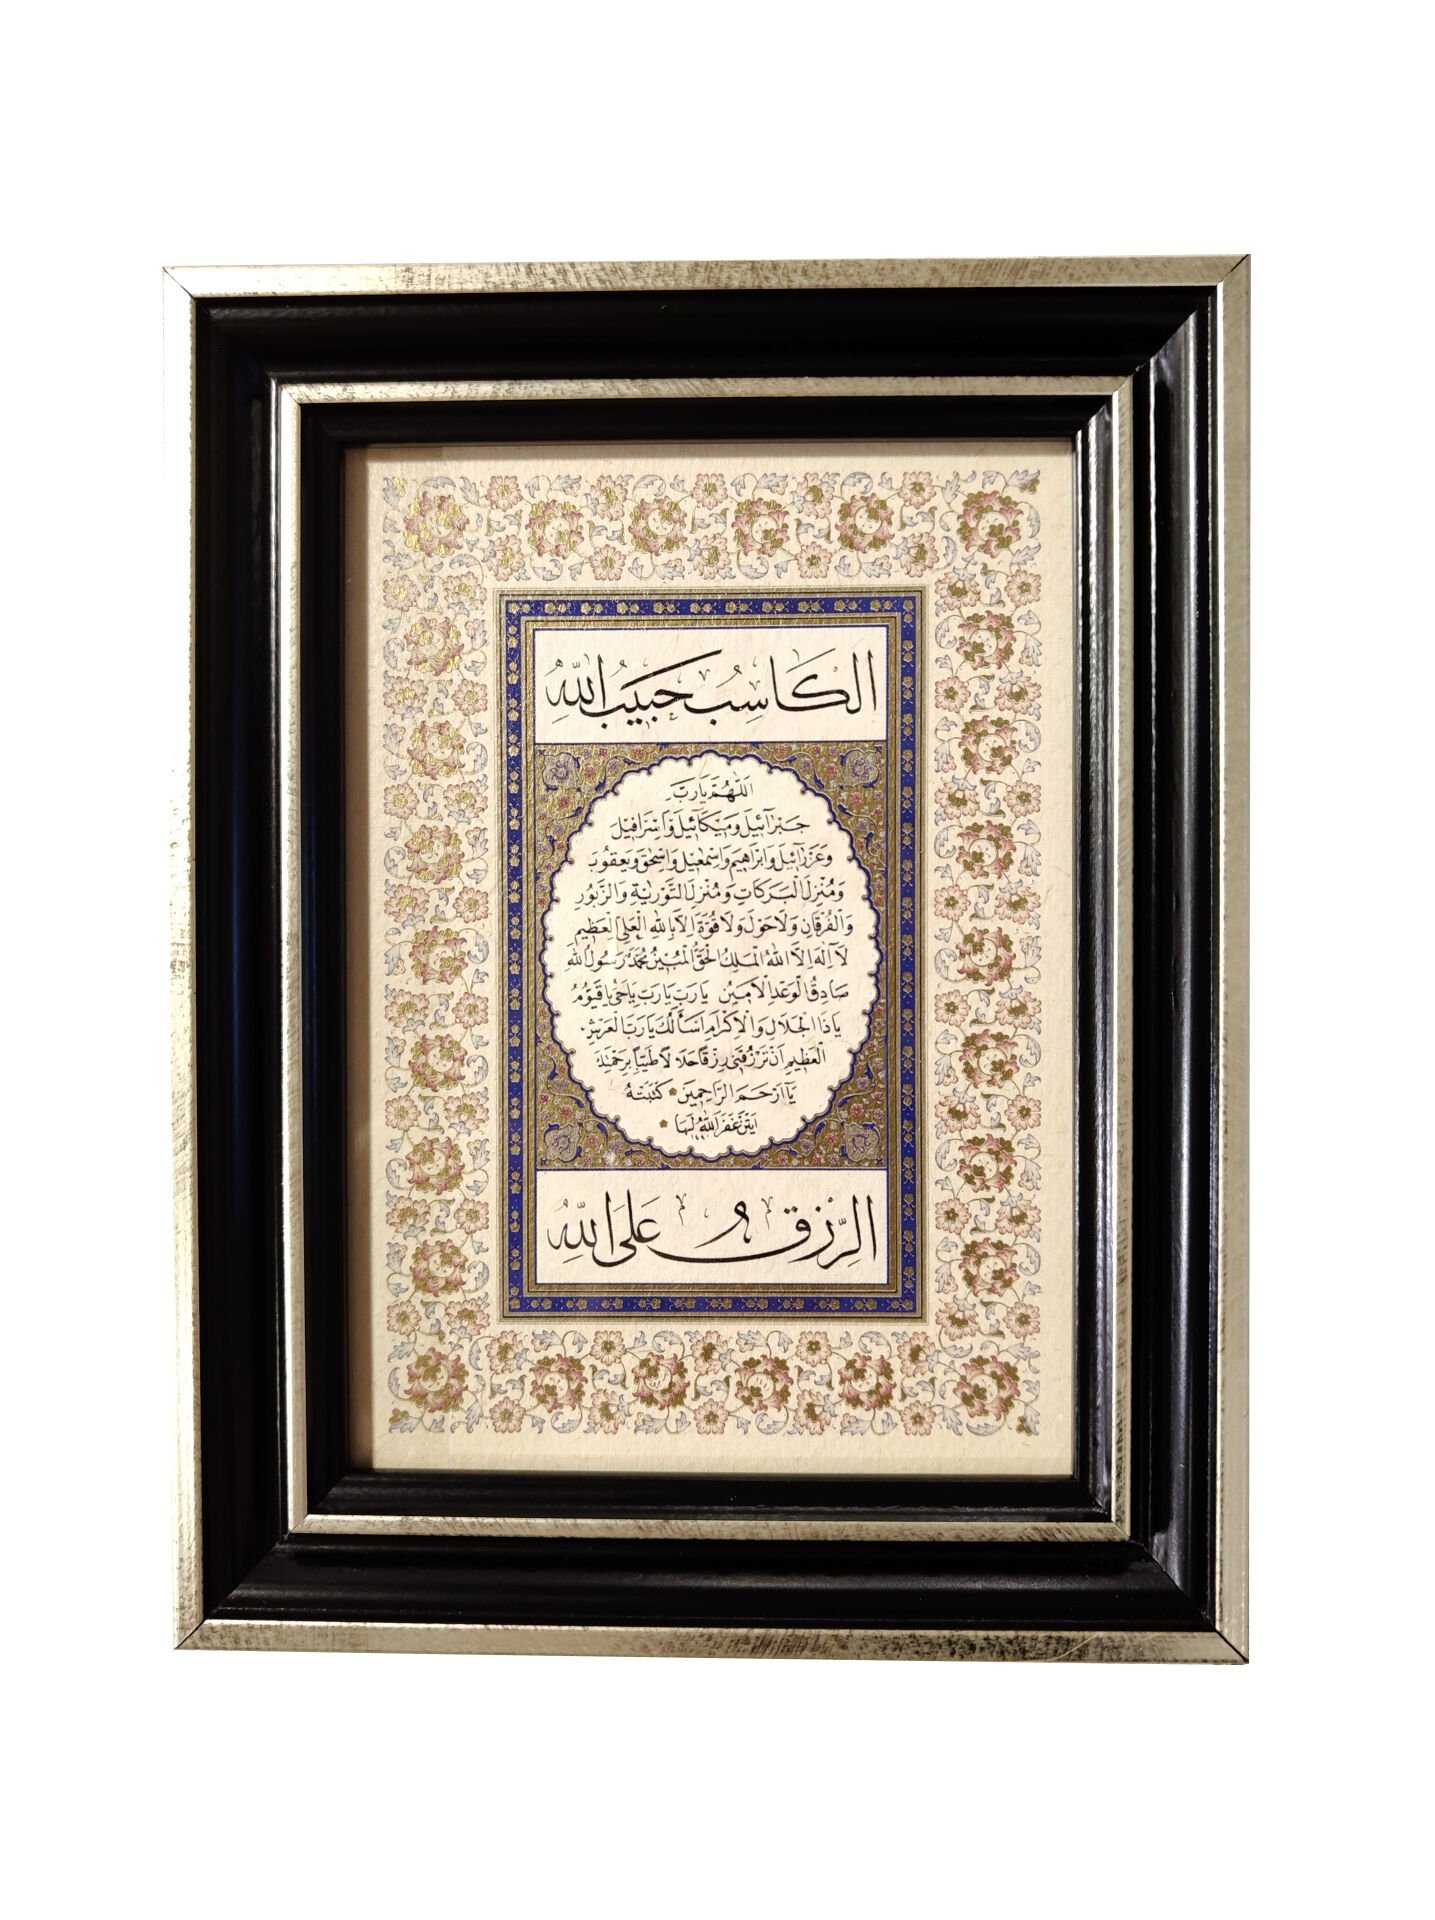 الكَاسِبُ حَبِيبُ اللهِ
اَللّٰهُمَّ يَارَبَّ
جَبْرَآئِيلَ وَمِيكَآئِيلَ وَاِسْرَافِيلَ
وَعَزْرَآئِيلَ وَاِبْرَاهِيمَ وَاِسْمٰعِيلَ وَاِسْحٰقَ وَيَعْقُوبَ
وَمُنْزِلَ الْبَرَكَاتِ وَمُنْزِلَ التَّوْرٰيةِ وَالزَّبُورِ
وَالْفُرْقَانِ وَلَاحَوْلَ وَلَا قُوَّةَ اِلَّا بِاللهِ الْعَلِيِّ الْعَظِيمِ
لَآ اِلٰهَ اِلَّا اللهُ الْمَلِكُ الْحَقُّ الْمُبِينُ مُحَمَّدٌ رَسُولُ اللهِ
صَادِقُ الْوَعْدِ الْاَمِينُ يَارَبِّ يَارَبِّ يَاحَيُّ يَاقَيُّومُ
يَاذَا الْجَلَالِ وَالْاِكْرَامِ اَسْأَلُكَ يَارَبَّ الْعَرْشِ
الْعَظِيمِ اَنْ تَرْزُقَنِي رِزْقًا حَلَالًا طَيِّبًا بِرَحْمَتِكَ
يَآ اَرْحَمَ الرَّاحِمِينَ كَتَبَتْهُ
غَفَرَ اللهُ لَهَا
الرِّزْقُ عَلَى اللهِ